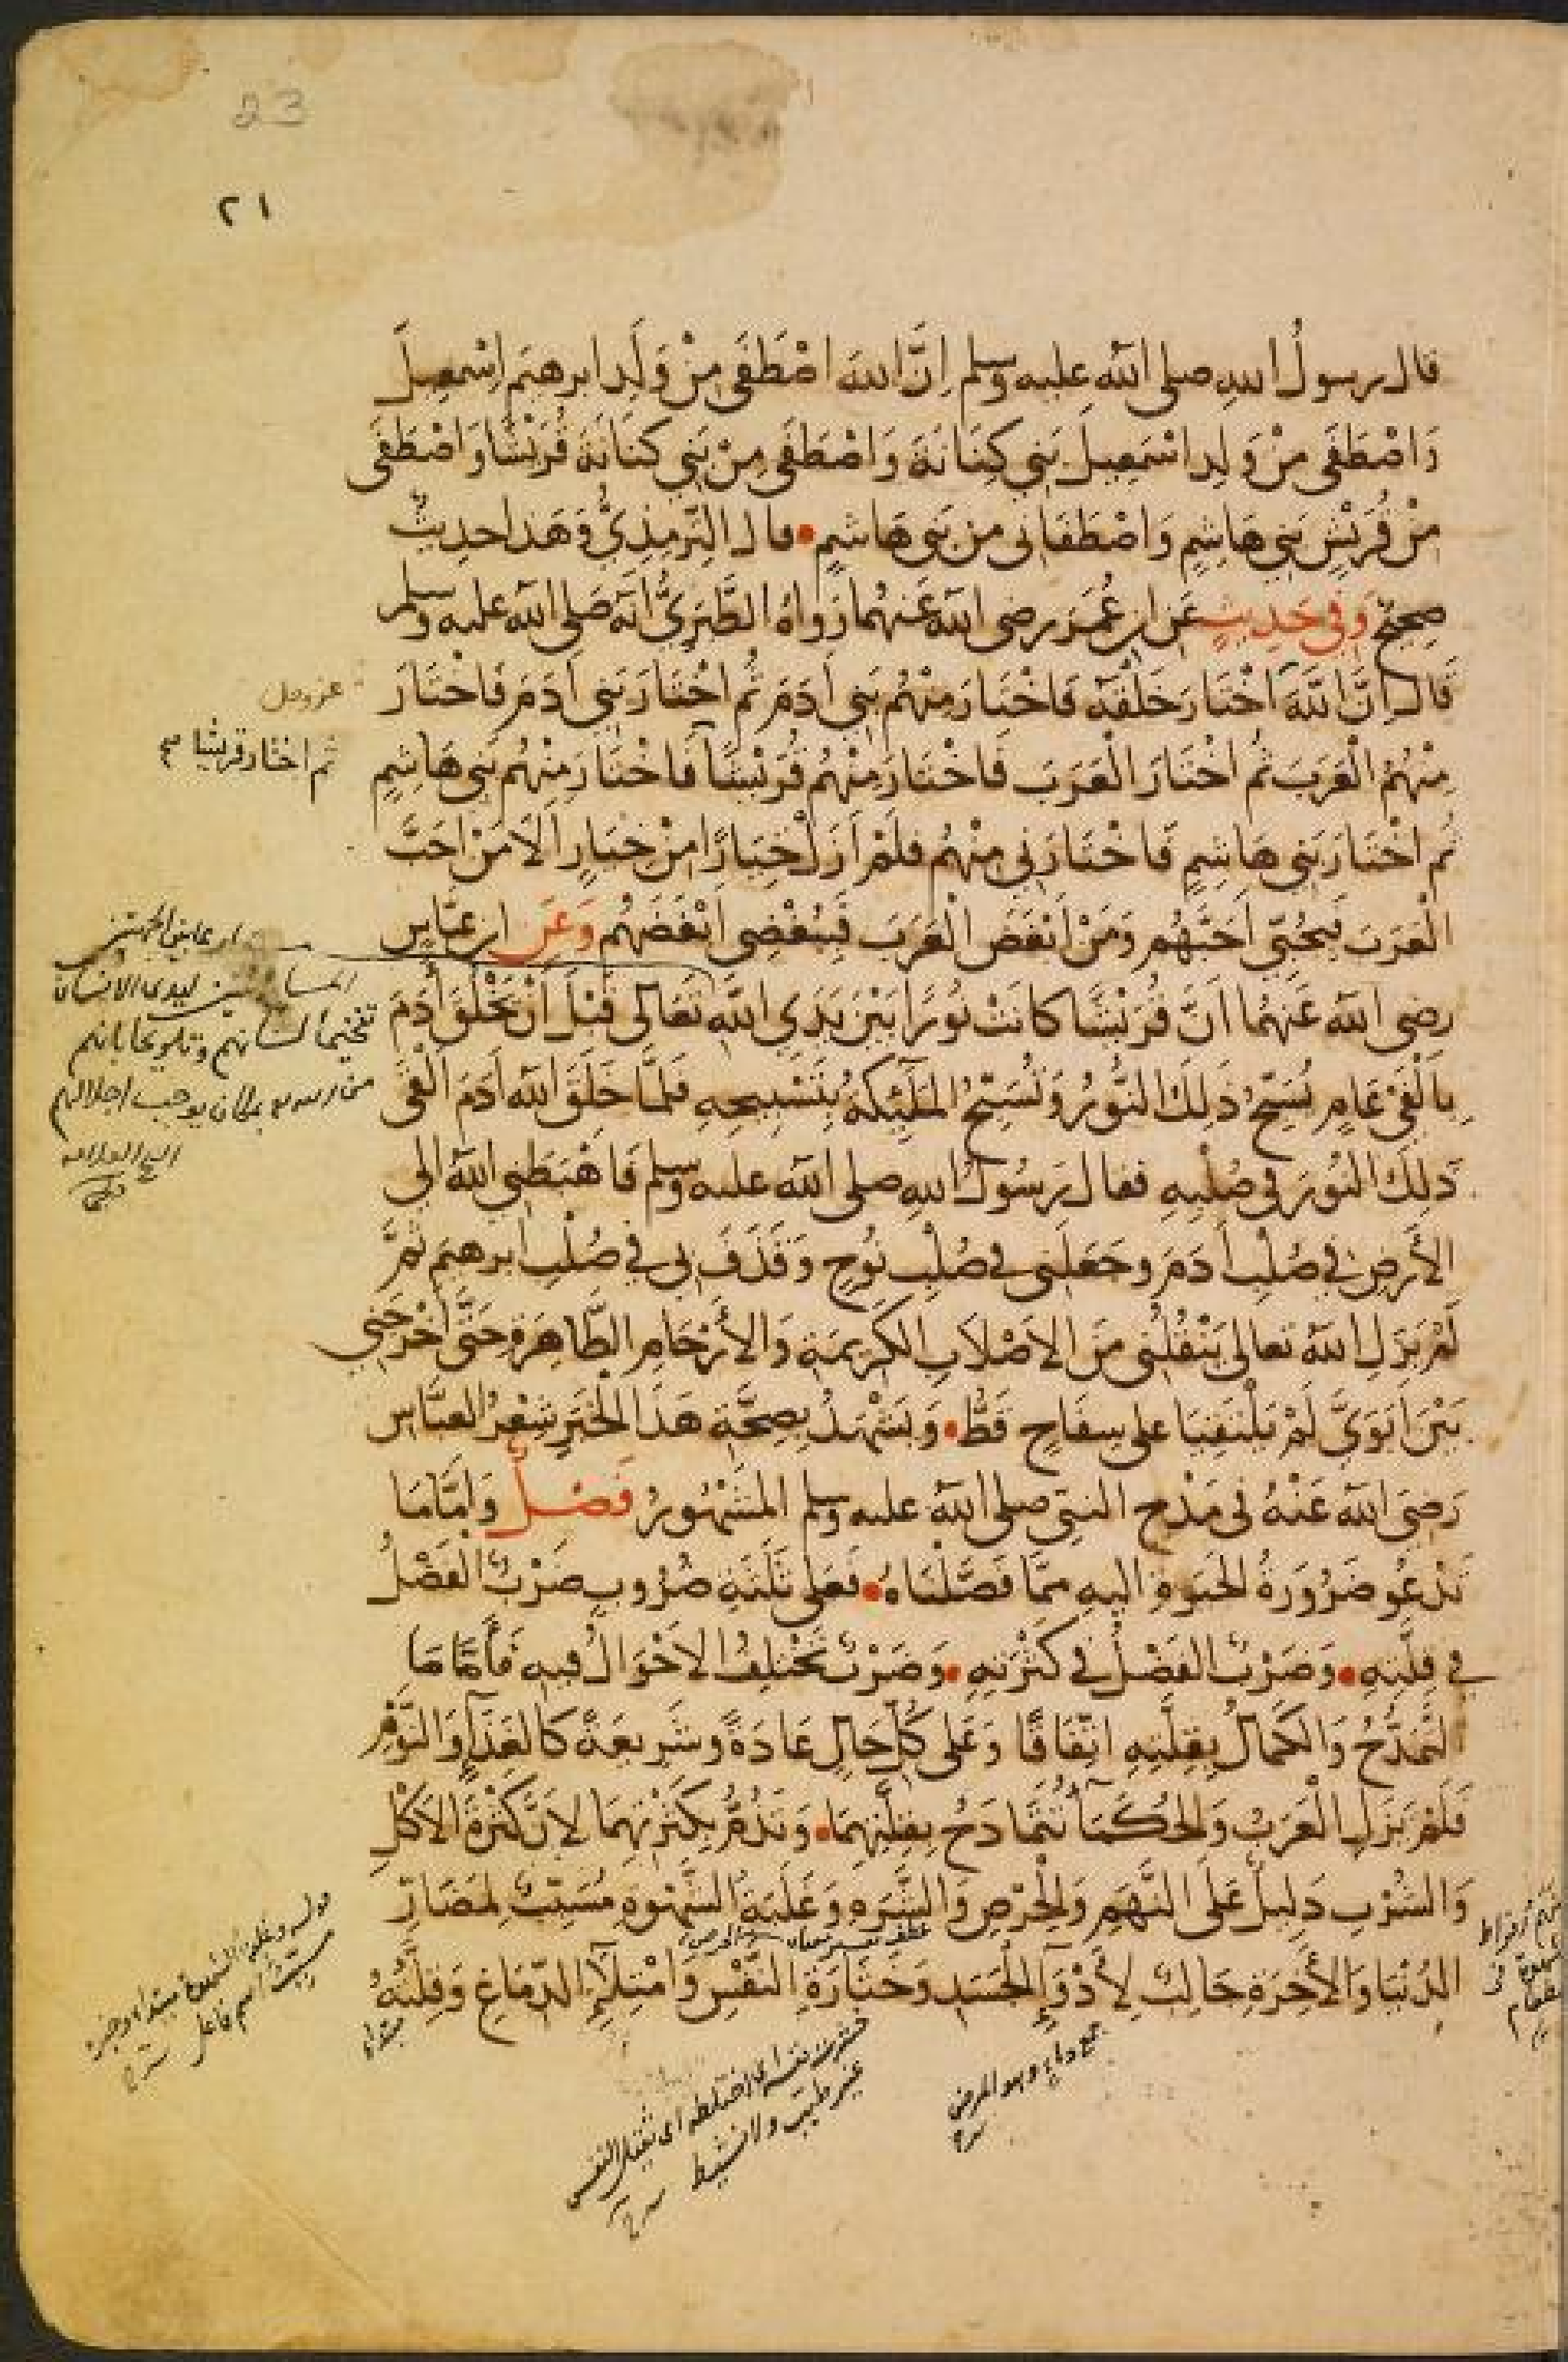 23
٢١
قال رسولُ اللهِ صلى اللهُ عليه وسلم اِنَّ اللهَ اصْطَفَى مِنْ وَلَدِ ابرهيمَ اِسْمعيلَ
وَاصْطَفَى مِنْ وَلِدِ اسْمَعِيلَ بَنِي كِنَانَةَ وَاصْطَفَى مِنْ بَنِي كنَانَةَ قُرَيْشًا وَاصْطَفَى
مِنْ قُرَيْشٍ بَنِي هَاشِمٍ وَاصْطَفَانى من بَنى هاشمٍ • قال التِّرمِذِيُّ وَهَذا حديثٌ
صحيحٌ وَفِى حَديثٍ عَن ابن عُمَرَ رضى اللهُ عَنهُما رَوَاهُ الطَّبَرِىُّ انَّه صَلى اللهُ عليه وسلم
قَالَ اِنَّ اللهَ اخْتَارَ خَلْقَهُ فَاخْتَارَ مِنْهُمْ بَنِي اٰدَمَ ثُم اخْتَارَ بَنِي اٰدَمَ فَاخْتَارَ
عز وجل
مِنْهُمُ الْعَرَبَ ثُم اخْتَارَ الْعَرَبَ فَاخْتَارَ مِنْهُم قُرَيْشًا فَاخْتَارَ مِنْهُم بَنِى هَاشِمٍ
ثم اختار قريشا صح
ثُم اخْتَارَ بَنِى هَاشِمٍ فَاخْتَارَنِى مِنْهُم فلَمْ اَزَلْ خِيَارًا مِنْ خِيَارٍ اَلَا مَنْ احَبَّ
الْعَرَبَ فَبِحُبِّى اَحَبَّهُم وَمَنْ اَبْغَضَ الْعَرَبَ فَبِبُغْضِى اَبْغَضَهُم وَعَنِ ابن عبَّاسٍ
رضى اللهُ عَنهُما اَنَّ قُرَيْشًا كانَتْ نُورًا بَيْنَ يَدَىِ اللهِ تَعَالى قَبْلَ اَنْ يَخْلُقَ اٰدَمَ
بِاَلْفَىْ عَامٍ يُسَبِّحُ ذَلِكَ النُّورُ وَتُسَبِّحُ المَلٰٓئِكَةُ بِتَسْبِيحِهِ فَلَمَّا خَلَقَ اللهُ اٰدَمَ اَلْقَى
ذلِكَ النُّورَ فى صُلْبِهِ فقال رَسُولُ اللهِ صلى اللهُ عليه وسلم فَاَهْبَطَنِى اللهُ الى
الأَرضِ فى صُلْبِ اٰدَمَ وجَعَلَنى فى صُلْبِ نُوحٍ وَقَذَفَ بى فى صُلْبِ ابرهيمَ ثُمَّ
لَمْ يَزَلِ اللهُ تعالى يَنْقُلُنى مِنَ الاَصْلاَبِ الكَرِيمَةِ وَالأَرْحَامِ الطَّاهِرَةِ حَتَّى اَخْرَجَنِي
بَيْنَ اَبَوَىَّ لَمْ يَلْتَقِيَا على سِفَاحٍ قَطُّ • وَيَشْهَدُ بِصِحَّةِ هَذَا الخَبَرِ شِعْرُ العبَّاسِ
رَضِىَ اللهُ عَنْهُ فى مَدْحِ النبِىِّ صلى اللهُ عليه وسلم المَشْهُورُ فَصْلٌ وَاَمَّا مَا
تَدْعُو ضَرُورَةُ الحَيوةِ اليهِ ممَّا فَصَّلْنَاهُ • فَعَلى ثَلٰثَةِ ضُرُوبٍ ضَرْبٌ الْفَضْلُ
فى قِلَّتِهِ • وَضَرْبٌ الفَضْلُ فى كَثْرَتِهِ • وَضَرْبٌ تَخْتَلِفُ الاَحْوَالُ فيهِ فَأَمَّا مَا
التَّمَدُّحُ وَالكَمالُ بِقِلَّتِهِ اتِّفَاقًا وَعَلى كُلِّ حَالٍ عَادَةً وشَرِيعَةً كَالغِذَآءِ وَالنَّوْمِ
فَلَمْ تَزَلِ الْعَرَبُ وَالحُكَمَآءُ تَتَمَادَحُ بِقِلَّتِهِمَا • وَتَذُمُّ بِكَثْرَتِهِمَا لاَنَّ كَثْرَةَ الاَكْلِ
وَالشُّرْبِ دَلِيلٌ عَلَى النَّهَمِ وَالْحِرْصِ وَالشَّرَهِ وَغَلَبَةُ الشَّهْوَةِ مُسَبِّبٌ لِمَضَارِّ
الدُّنْيَا وَالأٰخِرَةِ جَالِبٌ لِأَدْوَآءِ الْجَسَدِ وَخَثَارَةِ النَّفْسِ وَامْتِلَآءِ الدِّمَاغِ وَقِلَّتُهُ
تفخيما لشانهم
يوجب اجلالهم
قوله وغلبة الشهوة مبتداء وخبره
مسبب اسم فاعل
مبتداء
خثرت نفسه اى اختلطت اى ثقل النفس
غير طيب ولا نشيط
جمع داء وهو المرض